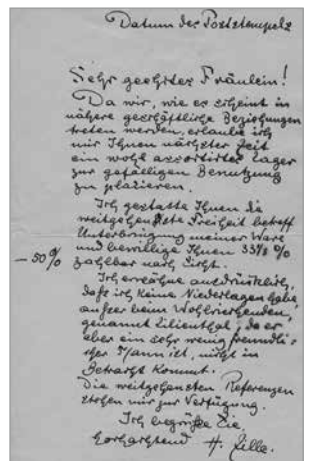 Datum des Poststempels
Sehr geehrtes Fräulein!
Da wir, wie es scheint in
nähere geschäftliche Beziehungen
treten werden, erlaube ich
mir Ihnen nächster Zeit
ein wohl assortirtes Lager
zur gefälligen Benutzung
zu plazieren.
Ich gestatte Ihnen die
weitgehendste Freiheit betreff
Unterbringung meiner Ware
und bewillige Ihnen 33⅓ %
– 50% zahlbar nach Sicht.
Ich erwähne ausdrücklich,
daß ich keine Niederlagen habe,
außer beim Wohlriechenden,
genannt Lilienthal, da er
aber ein sehr wenig freundli-
cher Mann ist, nicht in
Betracht kommt.
Die weitgehensten Referenzen
stehen mir zur Verfügung.
Ich begrüße Sie
Hochachtend H. Zille.